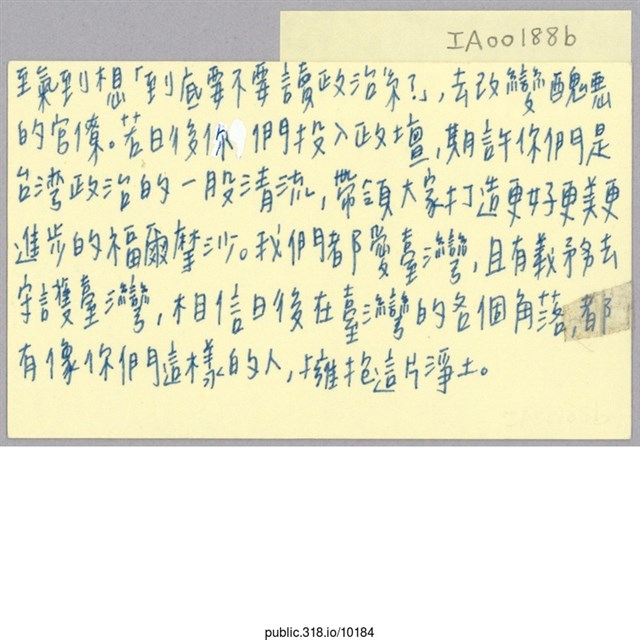 IA00188b
至氣到想「到底要不要讀政治系?」,去改變醜惡
的官僚。若日後你們投入政壇,期許你們是
台灣政治的一股清流,帶領大家打造更好更美更
進步的福爾摩沙。我們都愛臺灣,且有義務去
守護臺灣,相信日後在臺灣的各個角落,都
有像你們這樣的人,擁抱這片淨土。
public.318.io/10184